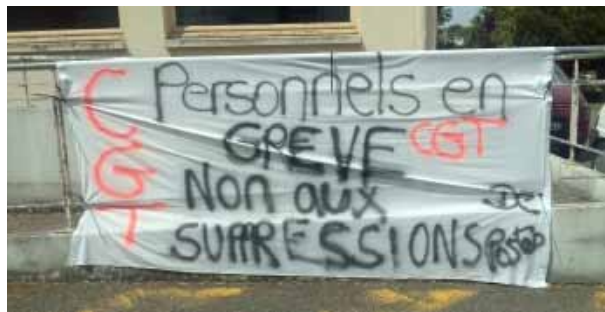 CGT
Personnels en
GREVE CGT
NON aux
SUPPRESSIONS De Postes